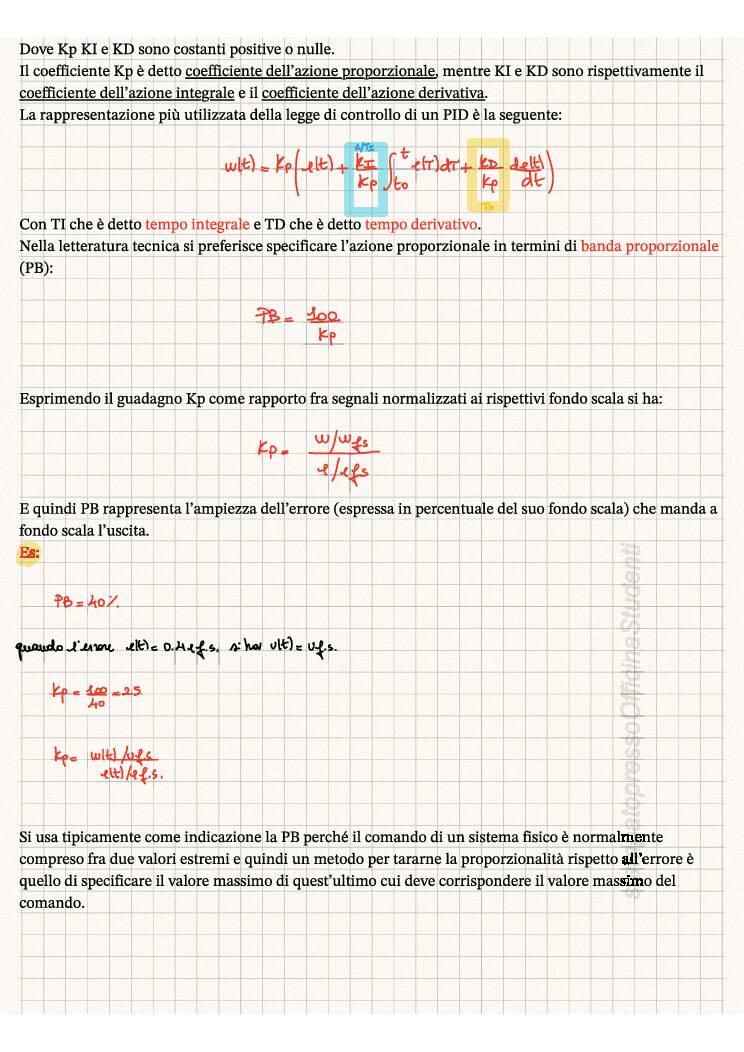 Dove Kp KI e KD sono costanti positive o nulle.
Il coefficiente Kp è detto coefficiente dell'azione proporzionale, mentre KI e KD sono rispettivamente il
coefficiente dell'azione integrale e il coefficiente dell'azione derivativa.
La rappresentazione più utilizzata della legge di controllo di un PID è la seguente:
u(t) = Kp ( e(t) + KI/Kp ∫_to^t e(τ)dτ + KD/Kp de(t)/dt )
1/TI
TD
Con TI che è detto tempo integrale e TD che è detto tempo derivativo.
Nella letteratura tecnica si preferisce specificare l'azione proporzionale in termini di banda proporzionale
(PB):
PB = 100/Kp
Esprimendo il guadagno Kp come rapporto fra segnali normalizzati ai rispettivi fondo scala si ha:
Kp = u/ufs / e/efs
E quindi PB rappresenta l'ampiezza dell'errore (espressa in percentuale del suo fondo scala) che manda a
fondo scala l'uscita.
Es:
PB = 40%
quando l'errore e(t) = 0.4 e f.s. si ha u(t) = u f.s.
Kp = 100/40 = 2.5
Kp = u(t)/u f.s. / e(t)/e f.s.
Si usa tipicamente come indicazione la PB perché il comando di un sistema fisico è normalmente
compreso fra due valori estremi e quindi un metodo per tararne la proporzionalità rispetto all'errore è
quello di specificare il valore massimo di quest'ultimo cui deve corrispondere il valore massimo del
comando.